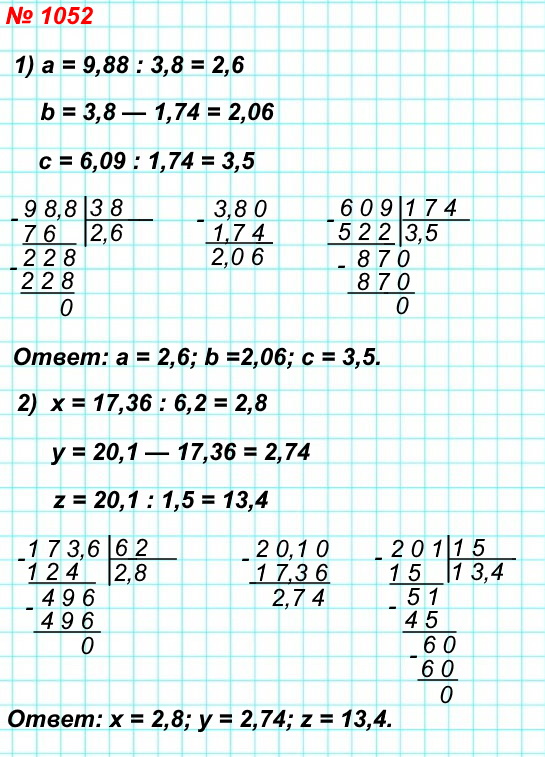 № 1052
1) a = 9,88 : 3,8 = 2,6
b = 3,8 — 1,74 = 2,06
c = 6,09 : 1,74 = 3,5
- 9 8,8 3 8
7 6 2,6
- 2 2 8
2 2 8
0
- 3,8 0
1,7 4
2,0 6
- 6 0 9 1 7 4
5 2 2 3,5
- 8 7 0
8 7 0
0
Ответ: a = 2,6; b =2,06; c = 3,5.
2) x = 17,36 : 6,2 = 2,8
y = 20,1 — 17,36 = 2,74
z = 20,1 : 1,5 = 13,4
- 1 7 3,6 6 2
1 2 4 2,8
- 4 9 6
4 9 6
0
- 2 0,1 0
1 7,3 6
2,7 4
- 2 0 1 1 5
1 5 1 3,4
- 5 1
4 5
- 6 0
6 0
0
Ответ: x = 2,8; y = 2,74; z = 13,4.